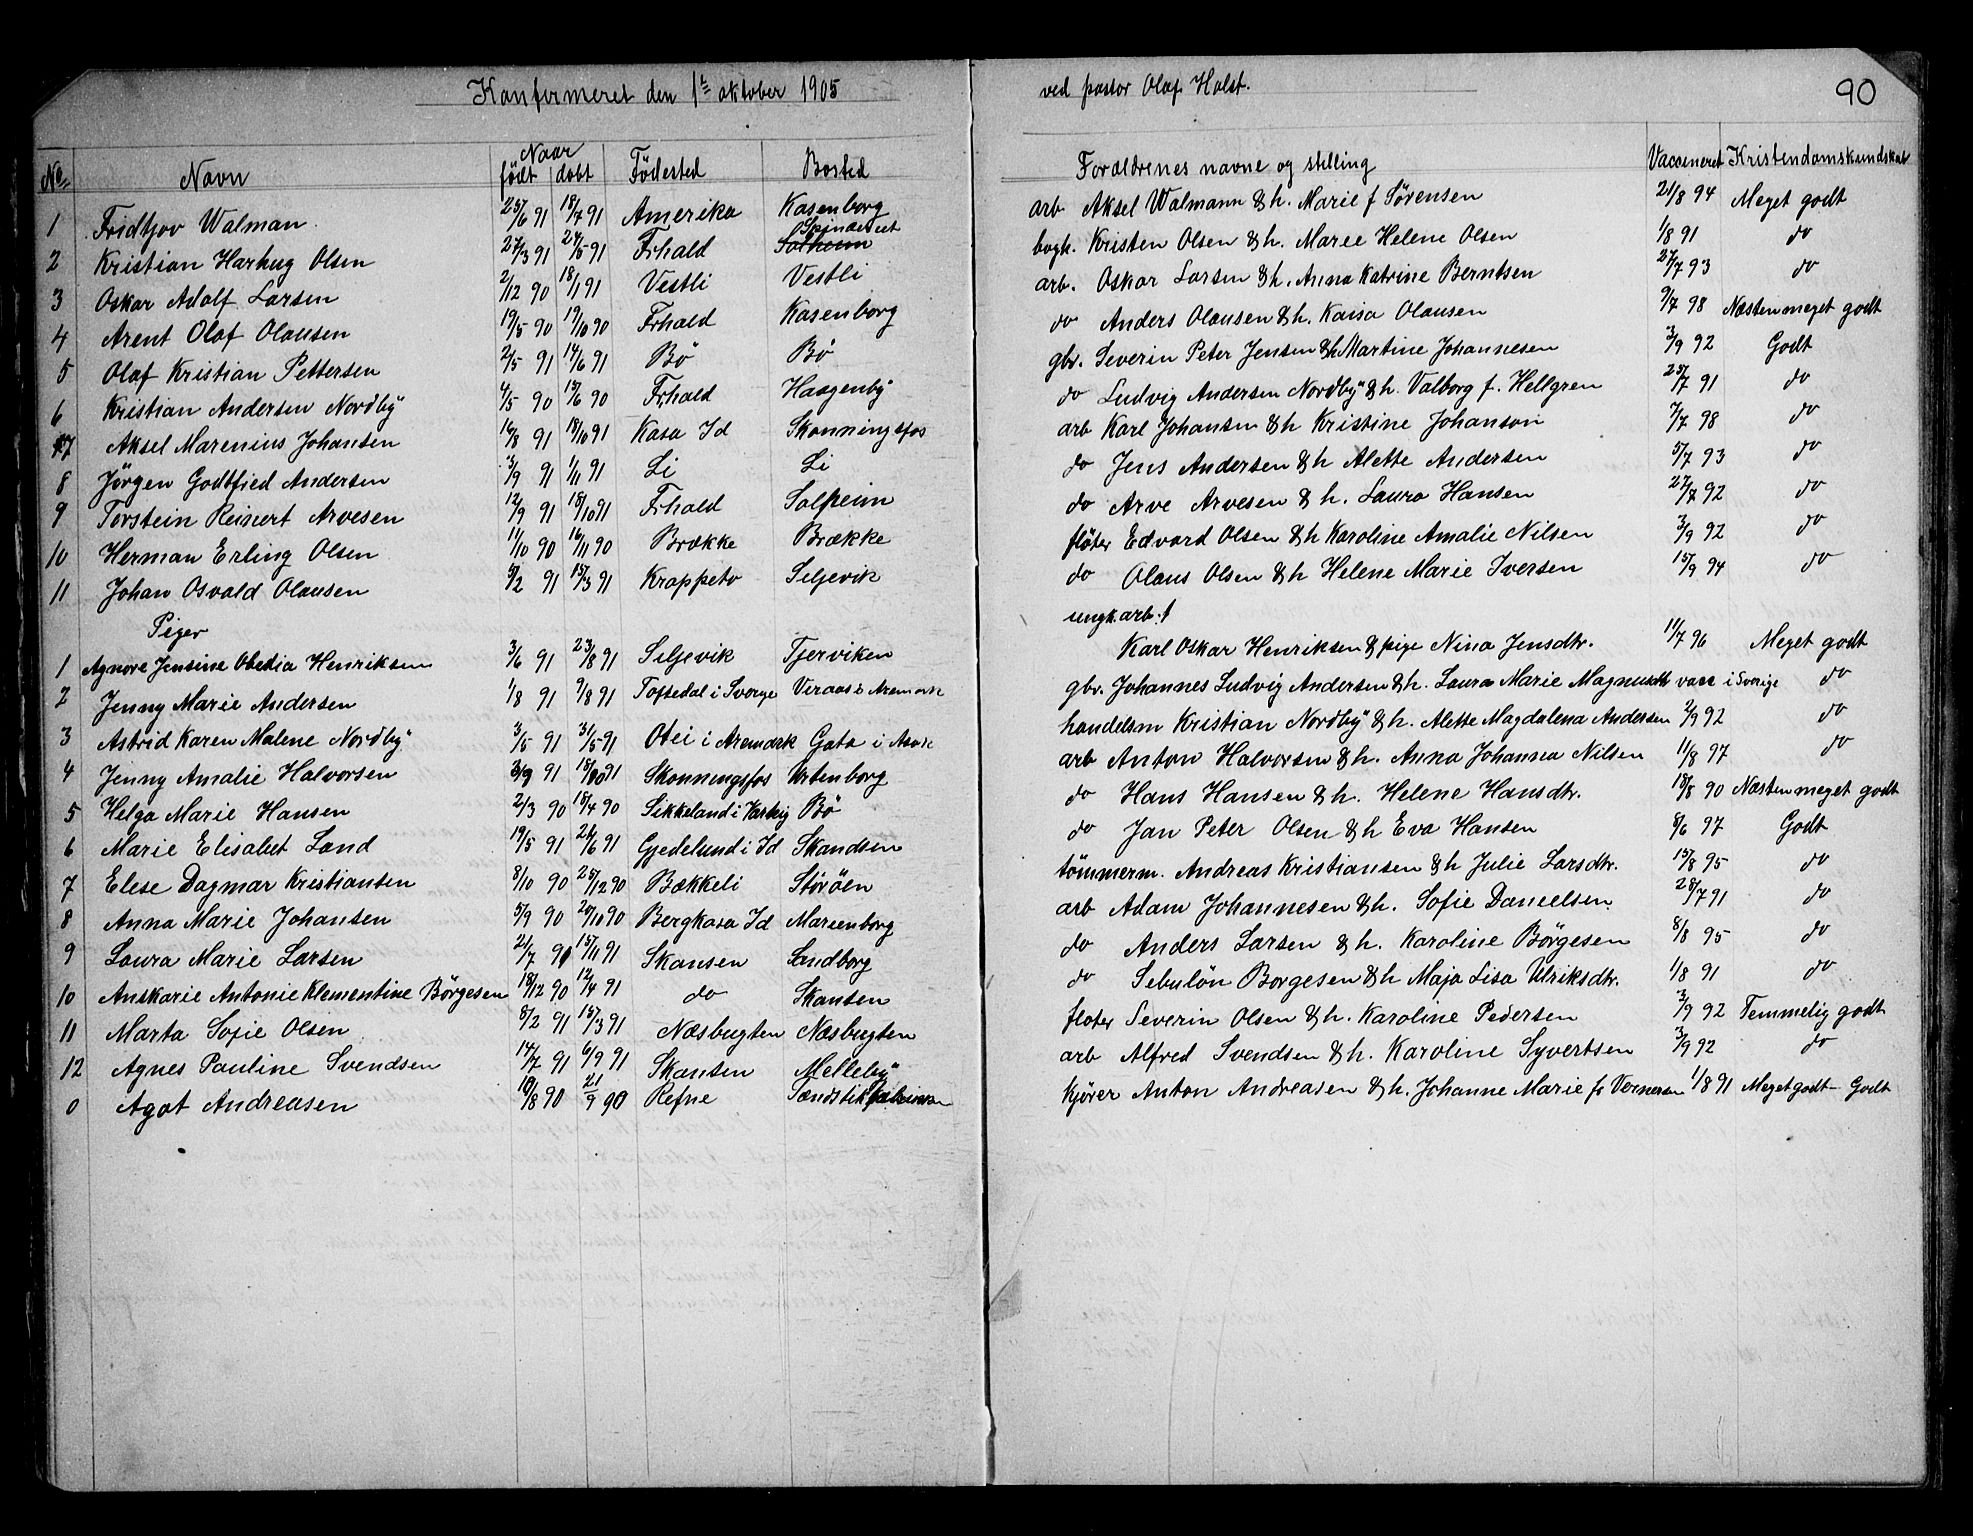 Konfirmeret den 1te oktober 1905 ved pastor Olaf Holst. 90
No. Navn Naar født døbt Fødested Bosted Forældrenes navne og stilling Vaccineret Kristendomskundskab
1 Fridtjov Walman 25/6 91 18/7 91 Amerika Kasenborg arb. Aksel Walmann & h. Marie f Sørensen 21/8 94 Meget godt
2 Kristian Harkug Olsen 27/3 91 24/5 91 Frhald Spinderiet Solheim bogh. Kristen Olsen & h. Marie Helene Olsen 1/8 91 do
3 Oskar Adolf Larsen 2/12 90 18/1 91 Vestli Vestli arb. Oskar Larsen & h. Anna Katrine Berntsen 27/7 93 do
4 Arent Olaf Olausen 19/5 90 19/10 90 Frhald Kasenborg do Anders Olausen & h. Kaisa Olausen 9/7 98 Næsten meget godt
5 Olaf Kristian Pettersen 2/5 91 14/6 91 Bö Bö gbr. Severin Peter Jensen & h Martine Johannesen 3/9 92 Godt
6 Kristian Andersen Nordby 4/5 90 15/6 90 Frhald Haagenby do Ludvig Andersen Nordby & h. Valborg f. Hellgren 25/7 91 do
7 Aksel Marenius Johansen 16/8 91 18/10 91 Kasa Id Skonningsfos arb Karl Johansen & h Kristine Johanson 7/7 98 do
8 Jørgen Godtfied Andersen 3/9 91 1/11 91 Li Li do Jens Andersen & h Alette Andersen 5/7 93 do
9 Torstein Reinert Arvesen 12/9 91 18/10 91 Frhald Solheim do Arve Arvesen & h. Laura Hansen 27/7 92 do
10 Herman Erling Olsen 11/10 90 16/11 90 Brække Brække fløter Edvard Olsen & h Karoline Amalie Nilsen 3/9 92 do
11 Johan Osvald Olausen 5/2 91 15/3 91 Krappeto Siljevik do Olaus Olsen & h Helene Marie Iversen 15/9 94 do
Piger ungk. arb.
1 Agnore Jensine Obedia Henriksen 3/6 91 23/8 91 Siljevik Tjerviken Karl Oskar Henriksen & pige Nina Jensdtr. 11/7 96 Meget godt
2 Jenny Marie Andersen 1/8 91 9/8 91 Tofsedal i Sverge Viraas i Aremark gbr. Johannes Ludvig Andersen & h. Laura Marie Magnusdtr vacc i Sverige do
3 Astrid Karen Malene Nordby 3/5 91 31/5 91 Otei i Aremark Gata i handelsm Kristian Nordby & h. Alette Magdalena Andersen 2/9 92 do
4 Jenny Amalie Halvorsen 3/9 91 18/10 91 Skonningsfos Urtenborg arb Anton Halvorsen & h. Anna Johanna Nilsen 11/8 97 do
5 Helga Marie Hansen 2/3 90 18/4 90 Sikkeland i Varteig Bö do Hans Hansen & h. Helene Hansdtr. 18/8 90 Næsten meget godt
6 Marie Elisabet Land 19/5 91 21/6 91 Gjedelund i Id Skandsen do Jan Peter Olsen & h Eva Hansen 5/6 97 Godt
7 Elese Dagmar Kristiansen 8/10 90 25/12 90 Bækkeli Störöen tömmerm. Andreas Kristiansen & h Julie Larsdtr. 15/8 95 do
8 Anna Marie Johansen 5/9 90 20/10 90 Bergkasa Id Marienborg arb Adam Johannesen & h. Sofie Danielsen 28/7 91 do
9 Laura Marie Larsen 21/7 90 15/11 91 Skansen Sandborg do Anders Larsen & h. Karoline Börgesen 8/8 95 do
10 Anskarie Antonie Klementine Börgesen 18/12 90 12/4 91 do Skansen do Sebulön Borgesen & h Maja Lisa Ulriksdtr. 1/8 91 do
11 Marta Sofie Olsen 8/2 91 15/3 91 Næsbugten Næsbugten fløter Severin Olsen & h. Karoline Pedersen 3/9 92 Temmelig godt
12 Agnes Pauline Svendsen 14/7 91 6/9 91 Skansen Melleby arb Alfred Svendsen & h. Karoline Syvertsen 3/9 92 do
0 Agot Andreasen 10/8 90 21/9 90 Refne Tændstikfabriken Kjører Anton Andreasen & h. Johanne Marie f. Vernersen 1/8 91 Meget godt - Godt